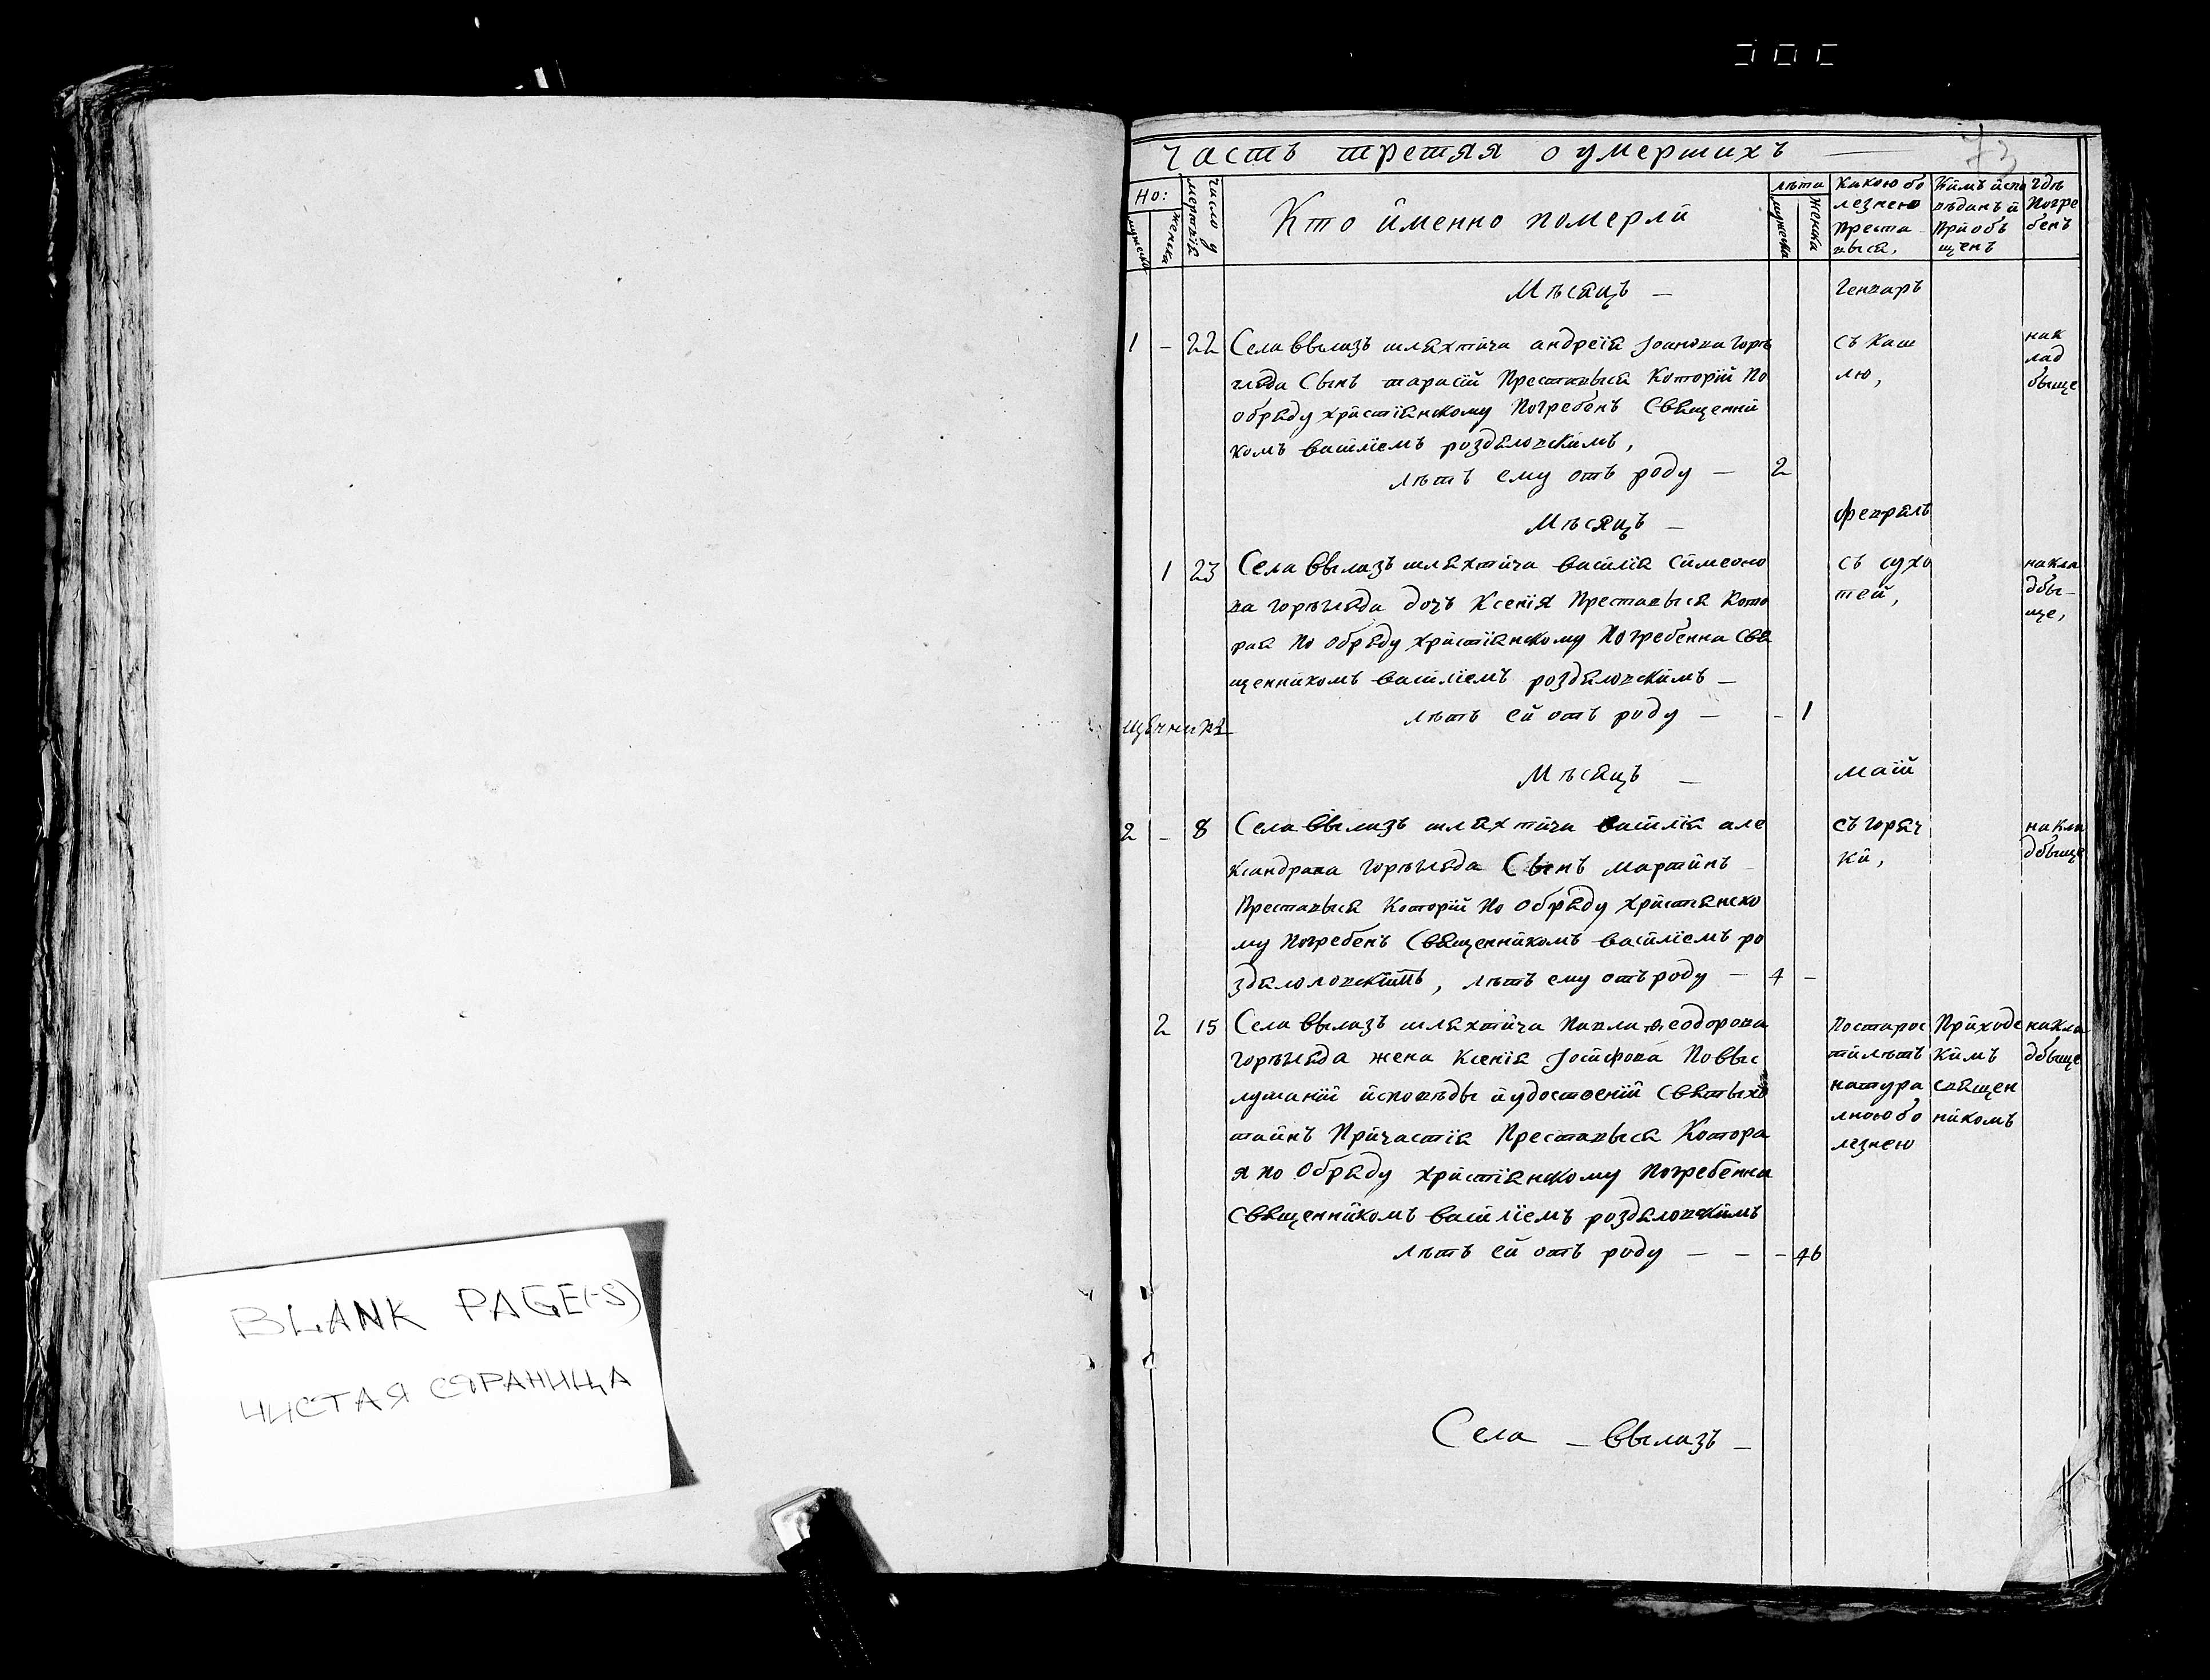 BLANK PAGE(-S)
ЧИСТАЯ СТРАНИЦА
73
Часть третяя о умершихъ
Но:
мужеска
женска
число у
мертвія
Кто именно померли
лѣта
мужеска
женска
Какою бо
лезнею
Преста
выся,
Кимъ испо
вѣданъ и
Приобъ
щенъ
гдѣ
Погре
бенъ
Мѣсяцъ —
Генваръ
1 – 22 Села Ввылазъ шляхтича андрея Іоанова Горѣ
гляда Сынъ тарасій Преставыся Которій По
обряду христіанскому Погребенъ Священни
комъ василіемъ роздяловскимъ,
лѣтъ ему отъ роду — 2
съ Каш
лю,
на к
лад
быще
Мѣсяцъ —
февраль
1 23 Села Ввылазъ шляхтича василія Симеоно
ва горѣгляда дочъ Ксенія Преставыся Кото
рая По обряду христіанскому Погребенна Свя
щенникомъ василіемъ роздяловскимъ —
лѣтъ ей отъ роду — – 1
съ сухо
тей,
на кла
дбы–
ще,
Мѣсяцъ —
маій
2 – 8 Села Ввылазъ шляхтича василія але
ксандрова горѣгляда Сынъ мартинъ
Преставыся Которій По обряду христянско
му Погребенъ Священникомъ василіемъ ро
здялоловскимъ, лѣтъ ему отъ роду — 4 –
съ горяч
ки,
на кла
дбыще
2 15 Села Ввылазъ шляхтича Павла ѳеодорова
горѣгляда жена Ксенія Іосифова По выс
лушаніи исповѣды и удостоеніи Святыхъ
таинъ Причастія Преставыся Котора
я по обряду христіанскому Погребенна
Священникомъ василіемъ роздяловскимъ
лѣтъ ей отъ роду — – – 46
По старос
ти лѣтъ
натура
лною бо
лезнею
Приходс
кимъ
священ
никомъ
на кла
дбыще
Села – Ввылазъ –